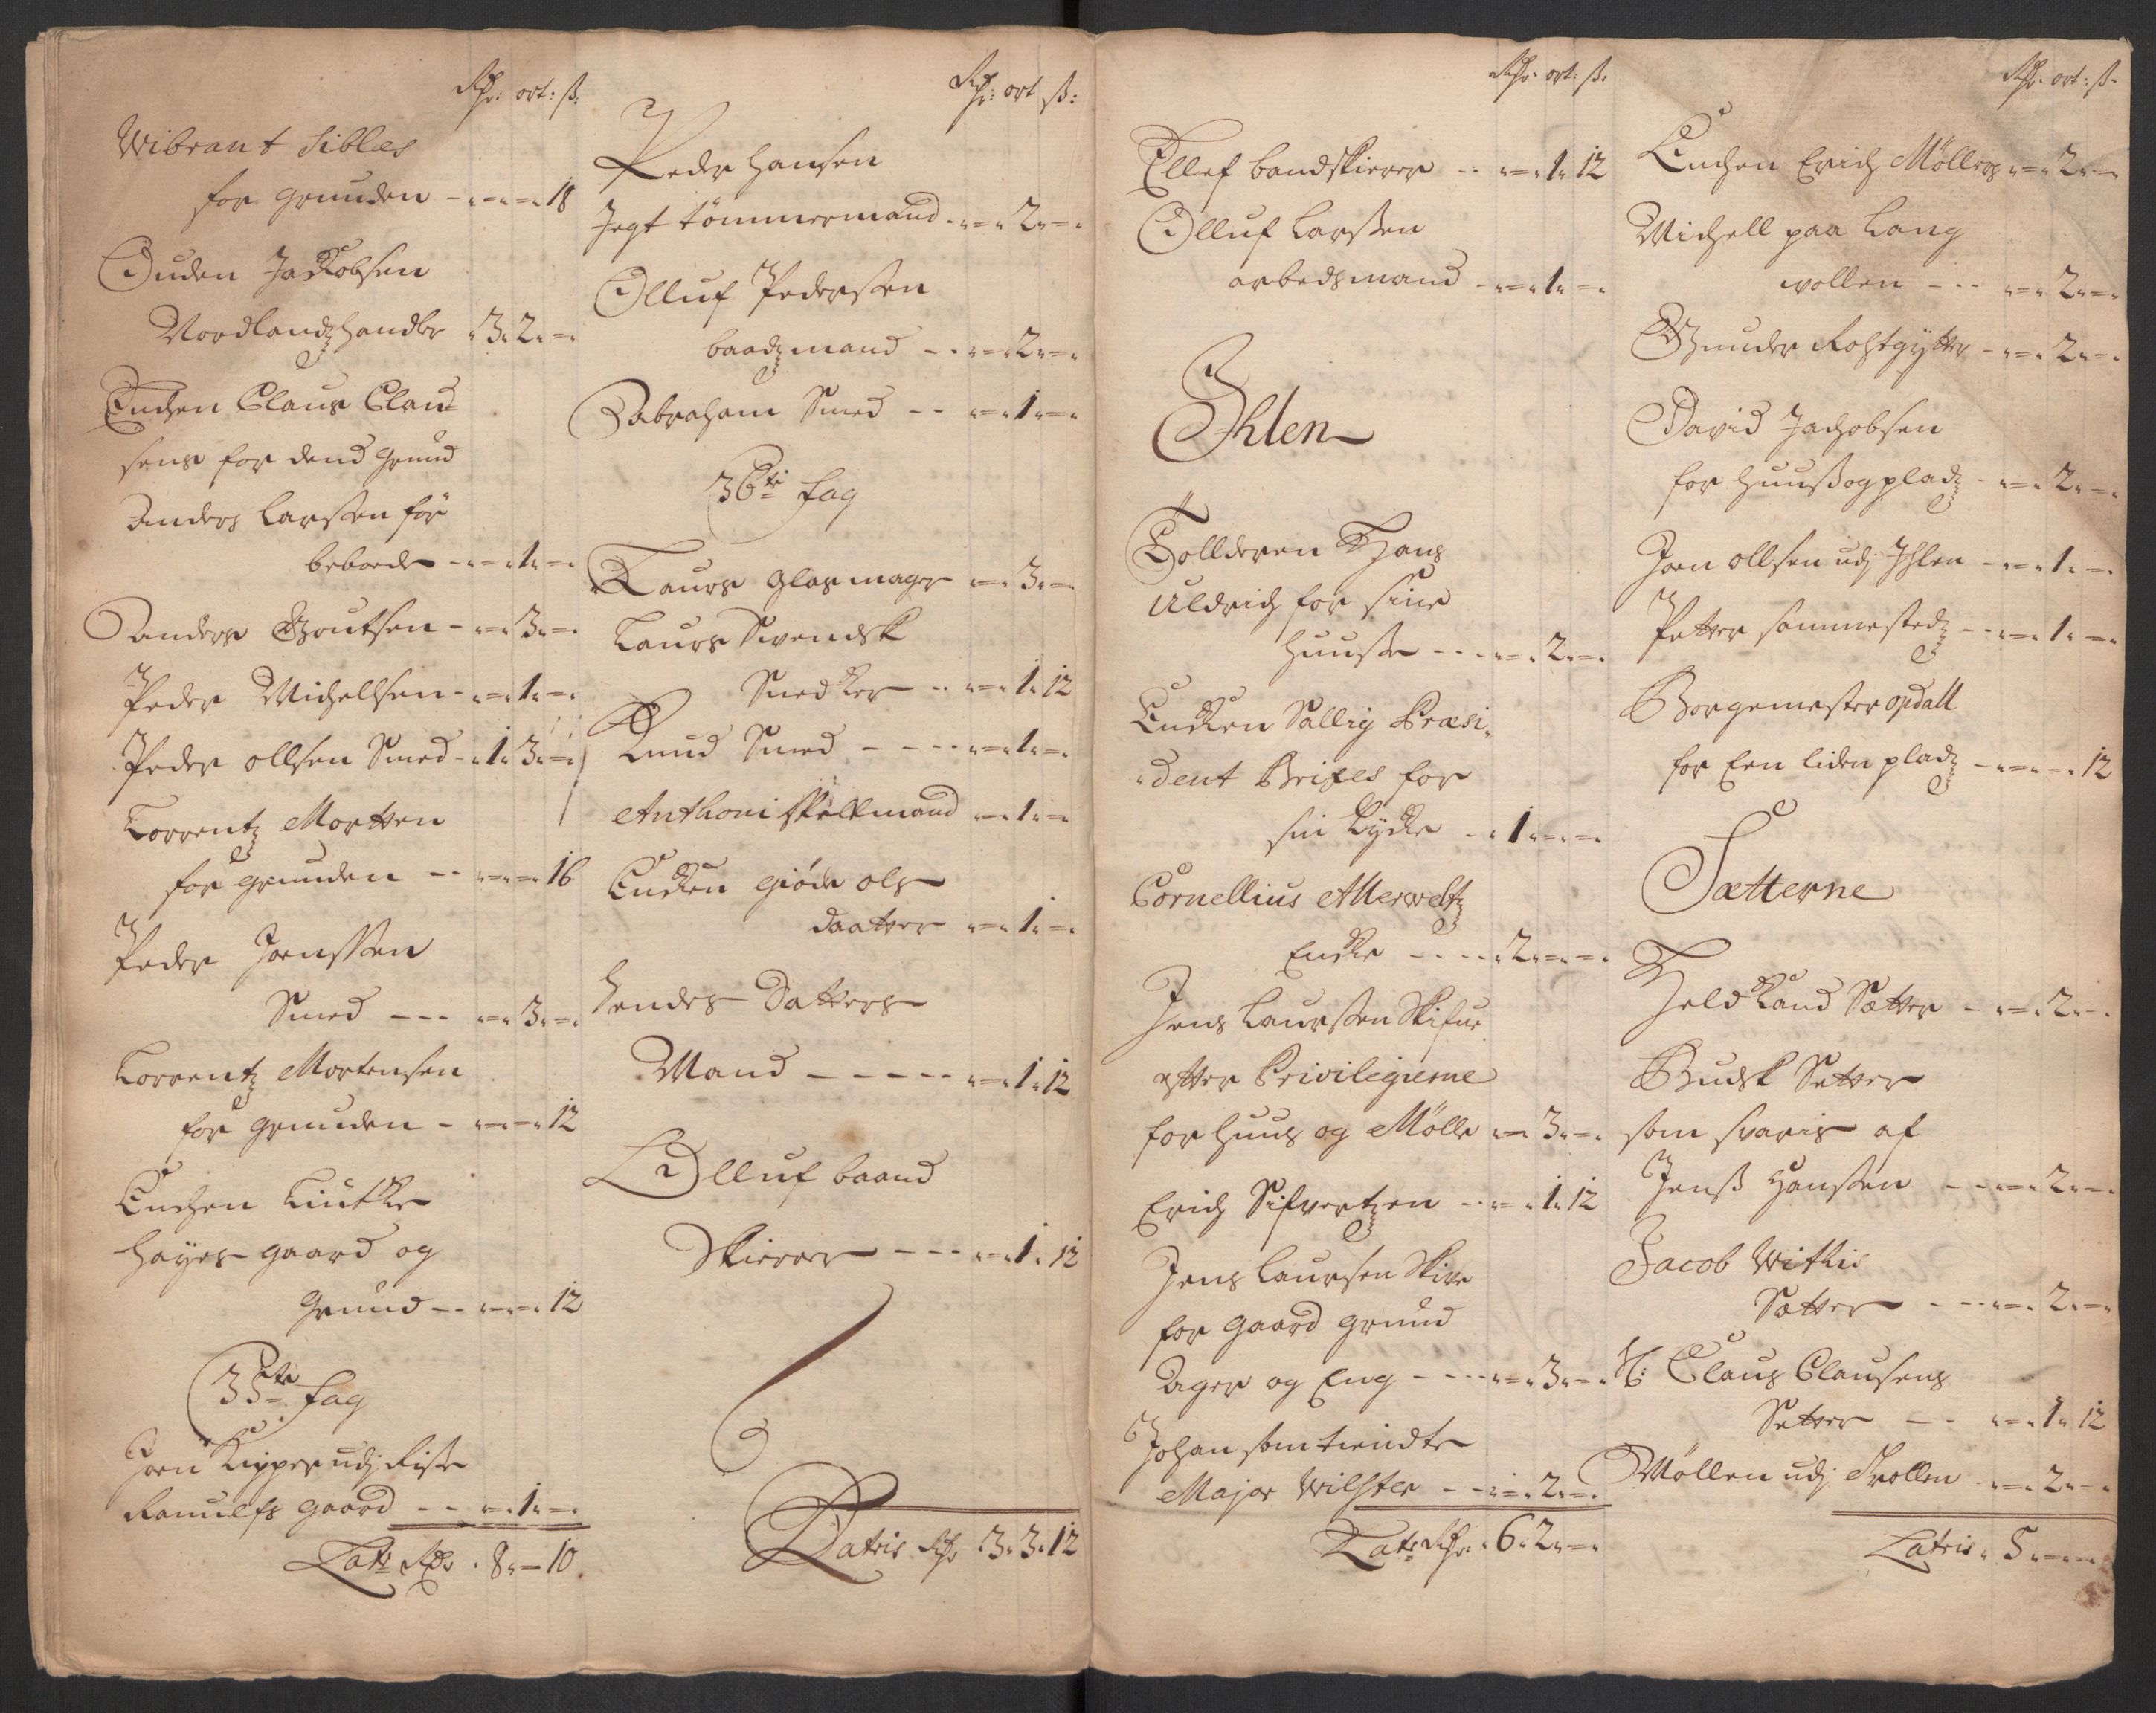 Rdr: ort: ß:
Wibrant Sibles
for grunden - „-„=„18
Ouden Jackobsen
Nordlandzhandler „3„2„=„
Enchen Claus Clau=
sens for dend grund
Anders Larssen før
beboede - „=„1„=„
Anders Goutsen - „=„3„=„
Peder Michelsen - „=„1„=„
Peder ollsen Smed - „1„3„=„
Lorrentz Morten
for grunden -- „=„=„16
Peder Joenssen
Smed --- „=„3„=„
Lorrentz Mortensen
for grunden - „=„=„12
Enchen Lüttke
Hayes gaard og
Grund -- „=„=„12
35te fag
Joen Kipper udj Riss
Ranulfs gaard -- „=„1„=„
Latr Rdr „8„-10
Rdr: ort ß:
Peder Hansen
Jegt tömmermand - „=„2„=„
Olluf Pedersen
baadzmand -- „=„2„=„
Abraham Smed -- „=„1„=„
36te fag
Laurs glasmager „=„3„=„
Laurs Svendsk
Snedker -- „=„1„12
Knud Smed ---- „=„1„=„
Anthoni Spillmand „=„1„=„
Encken giöde ols
daatter „=„1„=„
hendes Datters
Mand ----- „=„1„12
Olluf baand
Skierer --- „=„1„12
Latris Rdr „3„3„12
Rdr: ort: ß:
Ellef bandskierer -- „=„1„12
Olluf Larssen
arbedsmand - „=„1„=„
Ihlen
Tollderen Hans
Uldrich for sine
huusse --- „=„2„=„
Encken Sallig Præsi„
„dent Brixes for
sin lycke - „1„=„=„
Cornellius Allerweltz
Encke ---- „2„=„=„
Jens Laurssen Skifue
effter Privilegierne
for huus og Mölle „=„3„=„
Erich Sifvertzen -- „=„1„12
Jens Laursen Skive
for gaard grund
Ager og Eng --- „=„3„=„
Johan som tiendte
Major Wilster -- „=„2„=„
Latr Rdr: „6„2„=„
Rdr: ort: ß:
Enchen Erich Möllers „=„2„=„
Michell paa Lang
wollen --- „=„2„=„
Gunder Rohtgytter - „=„2„=„
David Jachobsen
for huuß og pladz - „=„2„=„
Joen ollsen udj Ihlen - „=„1„=„
Petter sommested -- „=„1„=„
Borgemester opdall
for Een liden pladz - „=„=„12
Sætterne
Held Rand Sætter - „=„2„=„
Budsk Setter
som svaris af
Jenß Hanssen -- „=„2„=„
Jacob Withis
Sætter --- „=„2„=„
H: Claus Clausens
Setter -- „=„1„12
Möllen udj Trollen - „=„2„=„
Latris „5„=„=„